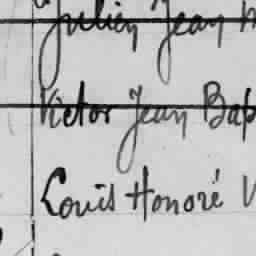 Julien Jean
Victor Jean Bap
Louis Honoré V